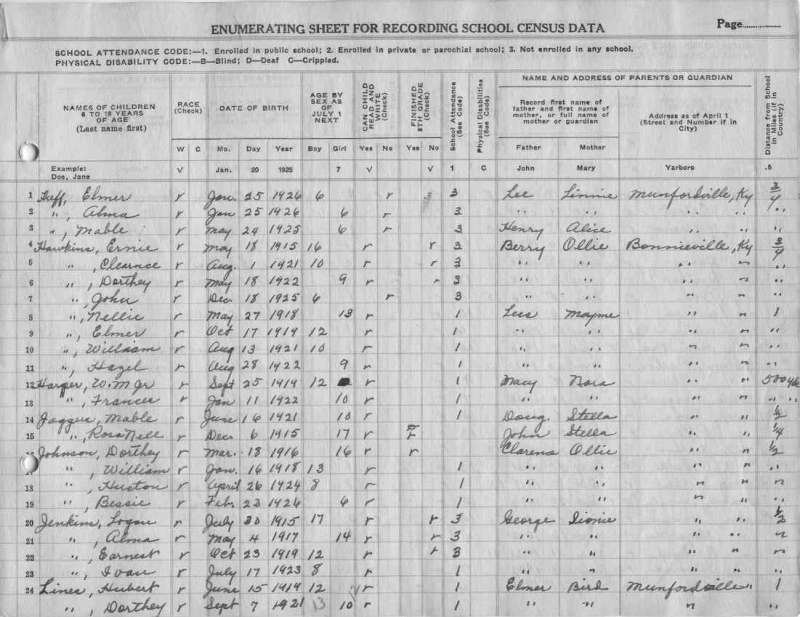 Page
ENUMERATING SHEET FOR RECORDING SCHOOL CENSUS DATA
SCHOOL ATTENDANCE CODE:—1. Enrolled in public school; 2. Enrolled in private or parochial school; 3. Not enrolled in any school.
PHYSICAL DISABILITY CODE:—B—Blind; D—Deaf C—Crippled.
NAMES OF CHILDREN 6 to 18 YEARS OF AGE (Last name first) RACE (Check) DATE OF BIRTH AGE BY SEX AS OF JULY 1 NEXT CAN CHILD READ AND WRITE (Check) FINISHED 8TH GRADE (Check) School Attendance (See Code) Physical Disabilities (See Code) NAME AND ADDRESS OF PARENTS OR GUARDIAN Distance from School in Miles (if in Country)
Record first name of father and first name of mother, or full name of mother or guardian Address as of April 1 (Street and Number if in City)
W C Mo. Day Year Boy Girl Yes No Yes No Father Mother
Example: Doe, Jane V Jan. 20 1925 7 V V 1 C John Mary Yarboro .5
1 Elmer r Jan. 25 1926 6 r 3 Lee Linnie Munfordville, Ky 3/4
2 ", Alma r Jan 25 1926 6 r 3 " " " " "
3 ", Mable r May 24 1925 6 r 3 Henry Alice " " "
4 Hawkins, Ernie r May 18 1915 16 r r 3 Berry Ollie Bonnieville, Ky 3/4
5 ", Clearnce r Aug. 1 1921 10 r r 3 " " " "
6 ", Dorthey r May 18 1922 9 r r 3 " " " " "
7 ", John r Dec 18 1925 6 r 3 " " " " "
8 ", Nellie r May 27 1918 13 r 1 Lus Mayme " " 1
9 ", Elmer r Oct 17 1919 12 r 1 " " " " "
10 ", William r Aug 13 1921 10 r 1 " " " " "
11 ", Hazel r Aug 28 1922 9 r 1 " " " " "
12 Harper, W. M Jr r Sept 25 1919 12 r 1 Macy Nora " " 500 yds
13 ", Frances r Jan 11 1922 10 r 1 " " " " "
14 Jaggers, Mable r June 16 1921 10 r 1 Doug. Stella " " 1/2
15 ", Rosa Nell r Dec. 6 1915 17 r r John Stella " " 1/4
Johnson, Dorthey r Mar. 18 1916 16 r r Clarence Ollie " " 1/2
", William r Jan. 16 1918 13 r 1 " " " " "
18 ", Huston r April 26 1924 8 r 1 " " " " "
19 ", Bessie r Feb. 23 1926 6 r 1 " " " "
20 Jenkins, Logan r July 30 1915 17 r r 3 George " " 1/2
21 ", Alma r May 4 1917 14 r r 3 " " " " "
22 ", Earnest r Oct 23 1919 12 r r 3 " " " " "
23 ", Ivan r July 17 1923 8 r 1 " " " " "
24 Lines, Hubert r June 15 1919 12 r 1 Elmer Bird Munfordville 1
", Dorthey r Sept 7 1921 13 10 r 1 " " " "